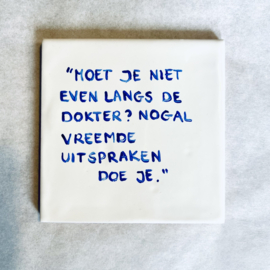 "MOET JE NIET
EVEN LANGS DE
DOKTER? NOGAL
VREEMDE
UITSPRAKEN
DOE JE."